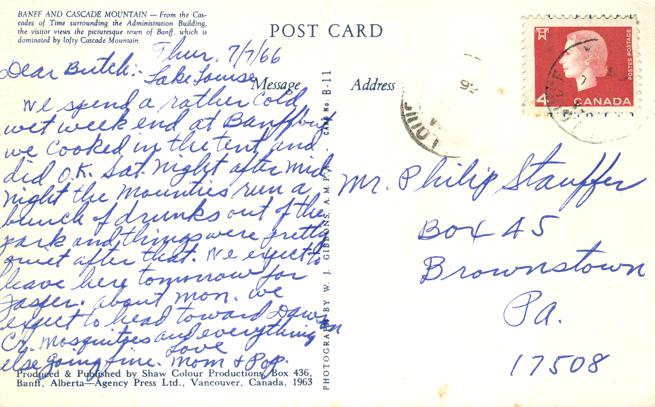 BANFF AND CASCADE MOUNTAIN — From the Cas-
cades of Time surrounding the Administration Building,
the visitor views the picturesque town of Banff, which is
dominated by lofty Cascade Mountain.
POST CARD
Thur. 7/7/66
Lake Louise
Dear Butch:
Message
Address
We spend a rather cold
wet week end at Banff but
we cooked in the tent and
did O.K. Sat. night after mid
night the Mounties run a
bunch of drunks out of the
park and things were pretty
quiet after that. We expect to
leave here tomorrow for
Jasper. about mon. we
expect to head toward Dawson
Cr. Mosquitoes and everything
else going fine. Love
Mom & Pop.
Produced & Published by Shaw Colour Productions, Box 436,
Banff, Alberta—Agency Press Ltd., Vancouver, Canada, 1963
PHOTOGRAPH BY W. J. GIBBONS, A.M.P.A. - CARD No. B-11
4
CANADA
POSTES POSTAGE
Mr. Philip Stauffer
Box 45
Brownstown
Pa.
17508